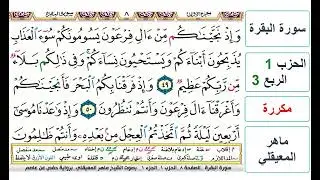 وَإِذْ نَجَّيْنَٰكُم مِّنْ ءَالِ فِرْعَوْنَ يَسُومُونَكُمْ سُوٓءَ ٱلْعَذَابِ
يُذَبِّحُونَ أَبْنَآءَكُمْ وَيَسْتَحْيُونَ نِسَآءَكُمْ وَفِى ذَٰلِكُم بَلَآءٌ
مِّن رَّبِّكُمْ عَظِيمٌ ٤٩ وَإِذْ فَرَقْنَا بِكُمُ ٱلْبَحْرَ فَأَنجَيْنَٰكُمْ
وَأَغْرَقْنَآ ءَالَ فِرْعَوْنَ وَأَنتُمْ تَنظُرُونَ ٥٠ وَإِذْ وَٰعَدْنَا مُوسَىٰٓ
أَرْبَعِينَ لَيْلَةً ثُمَّ ٱتَّخَذْتُمُ ٱلْعِجْلَ مِنۢ بَعْدِهِۦ وَأَنتُمْ ظَٰلِمُونَ
سورة البقرة
الحزب 1
الربع 3
مكررة
ماهر
المعيقلي